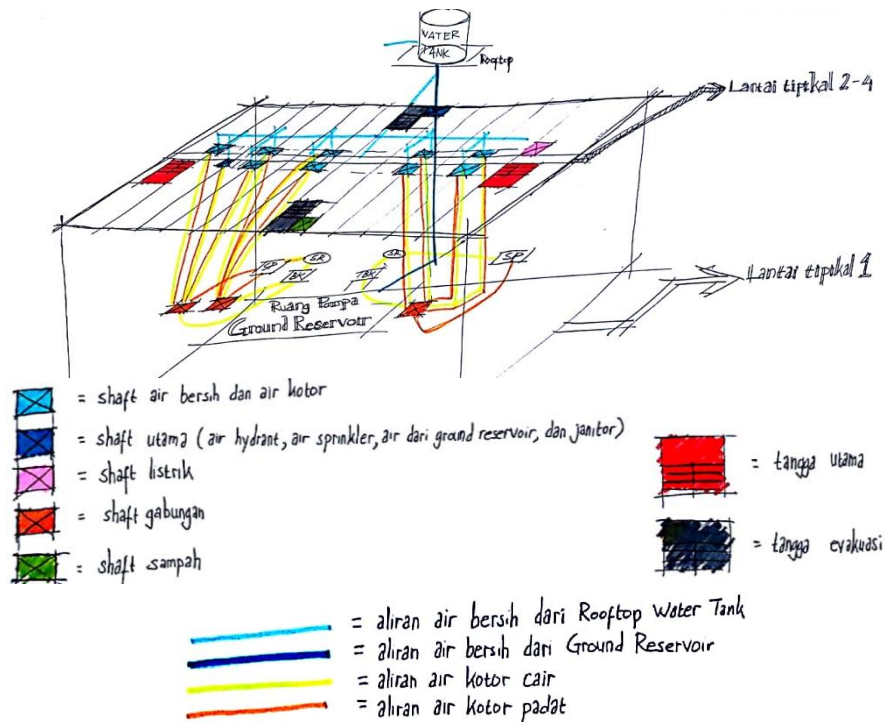 WATER
TANK
Rooftop
Lantai tipikal 2-4
SP
SR
BK
SR
SP
BK
Lantai tipikal 1
Ruang Pompa
Ground Reservoir
= shaft air bersih dan air kotor
= shaft utama (air hydrant, air sprinkler, air dari ground reservoir, dan janitor)
= shaft listrik
= shaft gabungan
= shaft sampah
= tangga utama
= tangga evakuasi
= aliran air bersih dari Rooftop Water Tank
= aliran air bersih dari Ground Reservoir
= aliran air kotor cair
= aliran air kotor padat